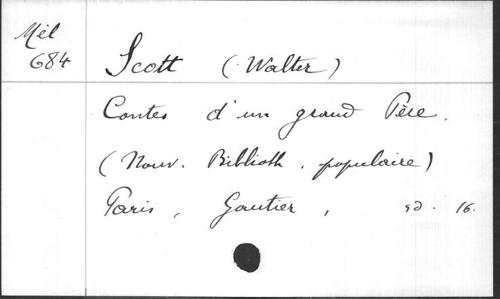 Mél
684
Scott (Walter)
Contes d'un grand Père.
(Nouv. Biblioth. populaire)
Paris, Gautier, sd. 16.